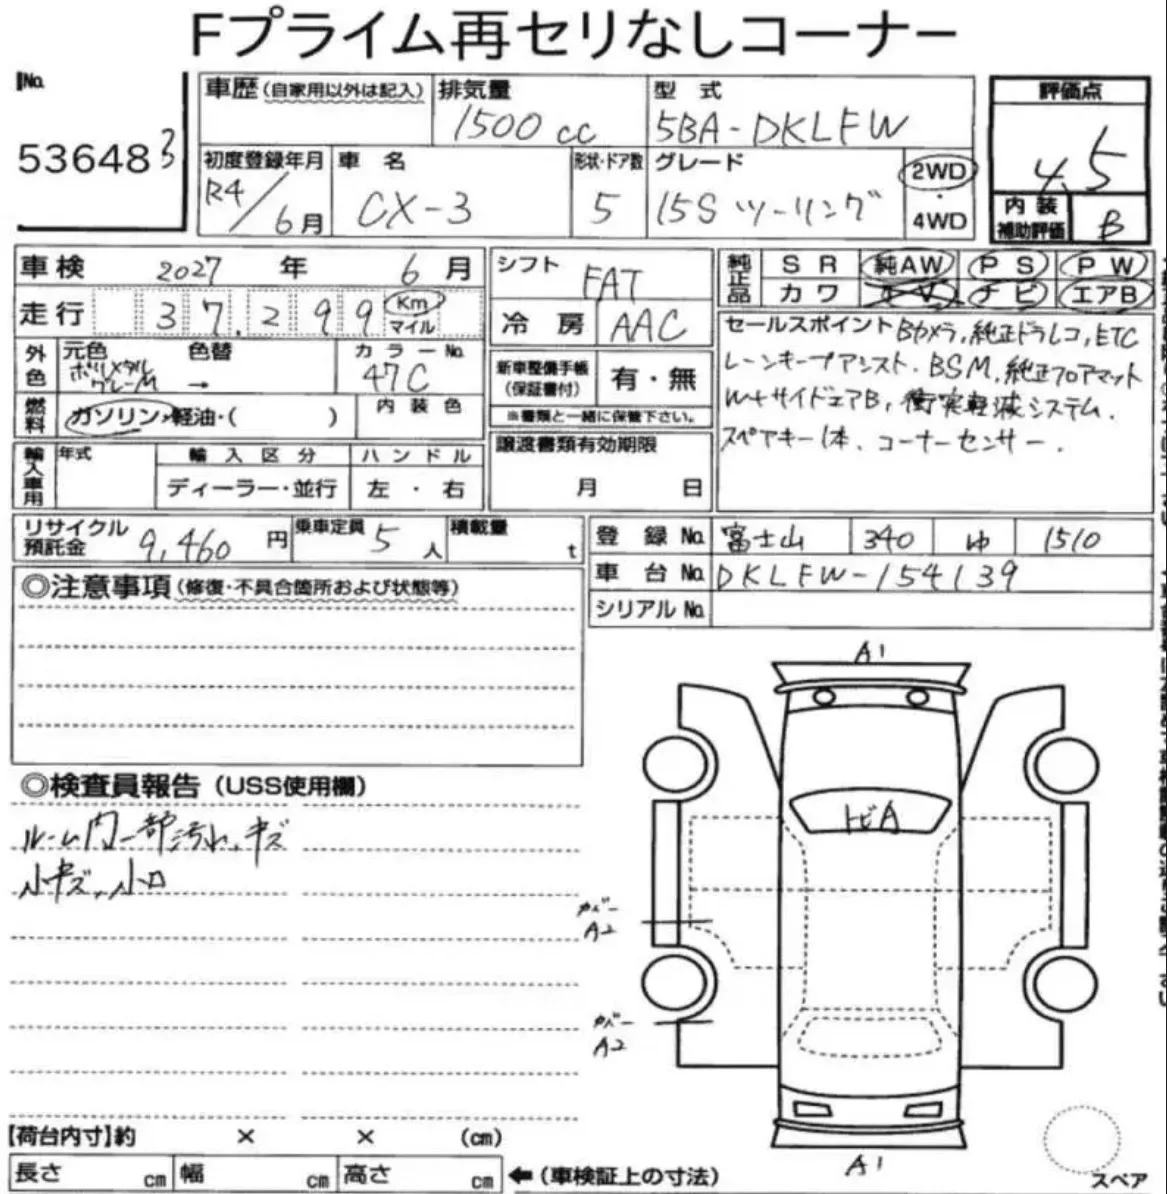 Fプライム再セリなしコーナー
No.
536483
車歴(自家用以外は記入)
排気量
1500 cc
型式
5BA-DKLFW
評価点
4.5
内装補助評価
B
初度登録年月
R4/6月
車名
CX-3
形状・ドア数
5
グレード
15S ツーリング
2WD
・
4WD
車検 2027年 6月
走行 37.299 Km マイル
シフト FAT
冷房 AAC
純正品
SR 純AW PS PW
カワ TV ナビ エアB
外色
元色 ポリメタルグレーM
色替 →
カラーNo. 47C
燃料
ガソリン・軽油・( )
内装色
新車整備手帳(保証書付) 有・無
※書類と一緒に保管下さい。
セールスポイント Bカメラ, 純正ドラレコ, ETC
レーンキープアシスト. BSM, 純正フロアマット
W+サイドエアB, 衝突軽減システム.
スペアキー1本、コーナーセンサー.
輸入車用
年式
輸入区分
ディーラー・並行
ハンドル
左・右
譲渡書類有効期限
月 日
リサイクル預託金 9,460円
乗車定員 5人
積載量 t
登録No. 富士山 340 ゆ 1510
車台No. DKLFW-154139
シリアルNo.
◎注意事項(修復・不具合箇所および状態等)
◎検査員報告(USS使用欄)
ルーム内一部汚れ、キズ
小キズ、小凹
A1
トビA
カバー
A2
カバー
A2
A1
スペア
【荷台内寸】約 × × (cm)
長さ cm 幅 cm 高さ cm ←(車検証上の寸法)